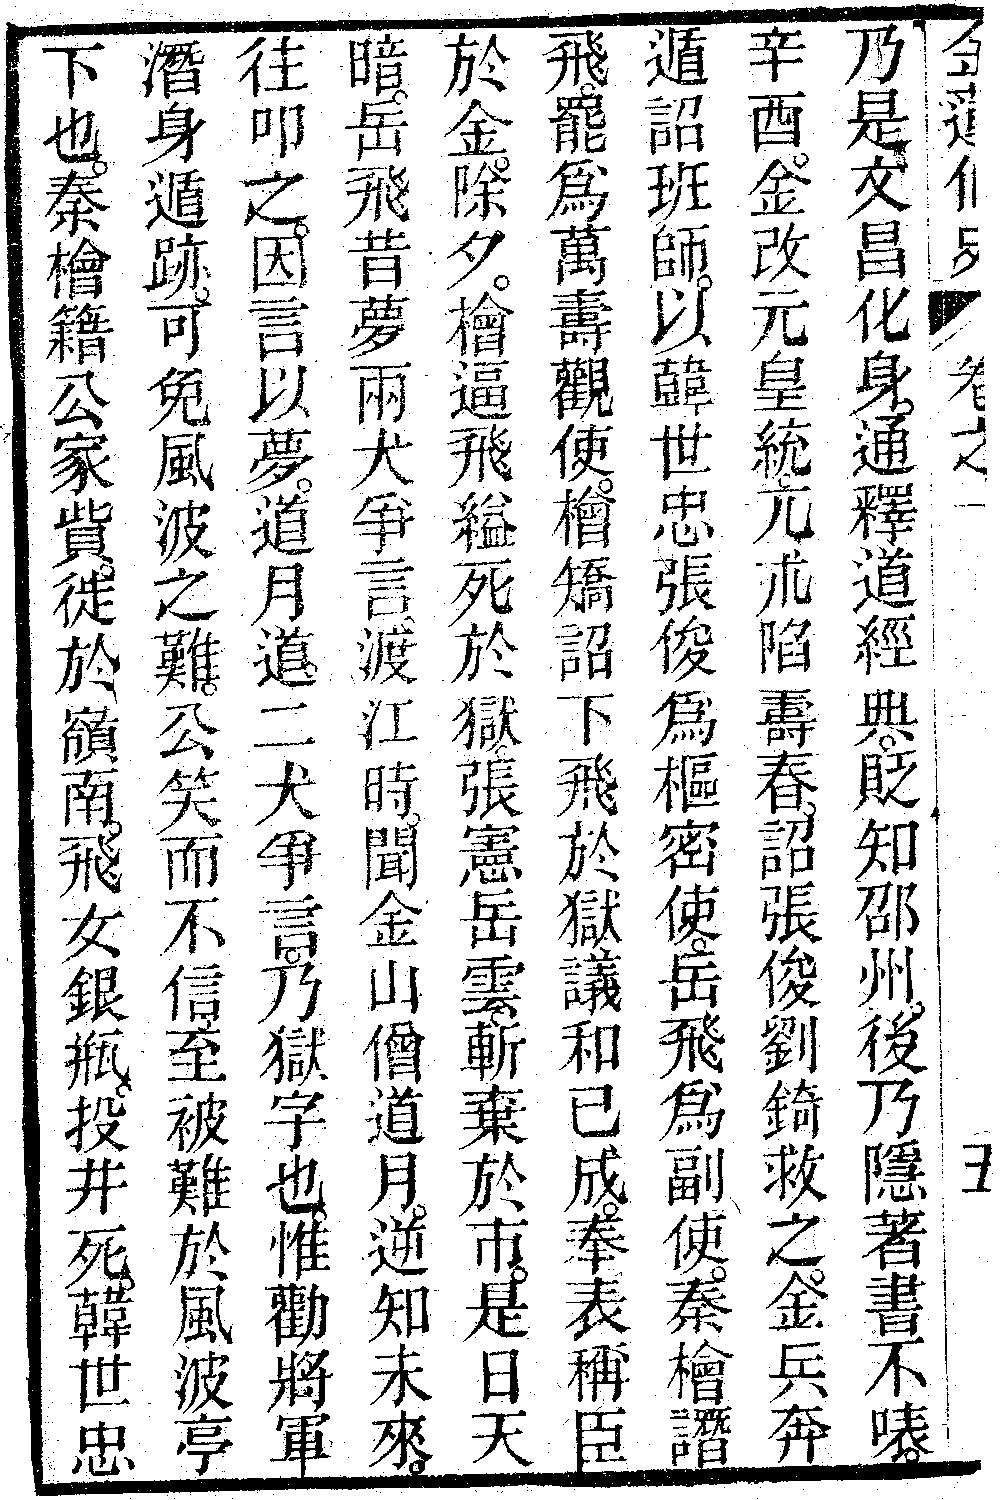 卷之
五
乃是文昌化身。通釋道經典。貶知邵州。後乃隱著書不嗉。
辛酉。金改元皇統。兀朮陷壽春。詔張俊劉錡救之。金兵奔
遁。詔班師。以韓世忠張俊爲樞密使。岳飛爲副使。秦檜譖
飛。罷爲萬壽觀使。檜矯詔下飛於獄。議和已成。奉表稱臣
於金。除夕。檜逼飛縊死於獄。張憲岳雲斬棄於市。是日天
暗。岳飛昔夢兩犬爭言。渡江時。聞金山僧道月。逆知未來。
往叩之。因言以夢。道月道。二犬爭言。乃獄字也。惟勸將軍
潛身遁跡。可免風波之難。公笑而不信。至被難於風波亭
下也。秦檜籍公家貲。徙於嶺南。飛女銀瓶。投井死。韓世忠